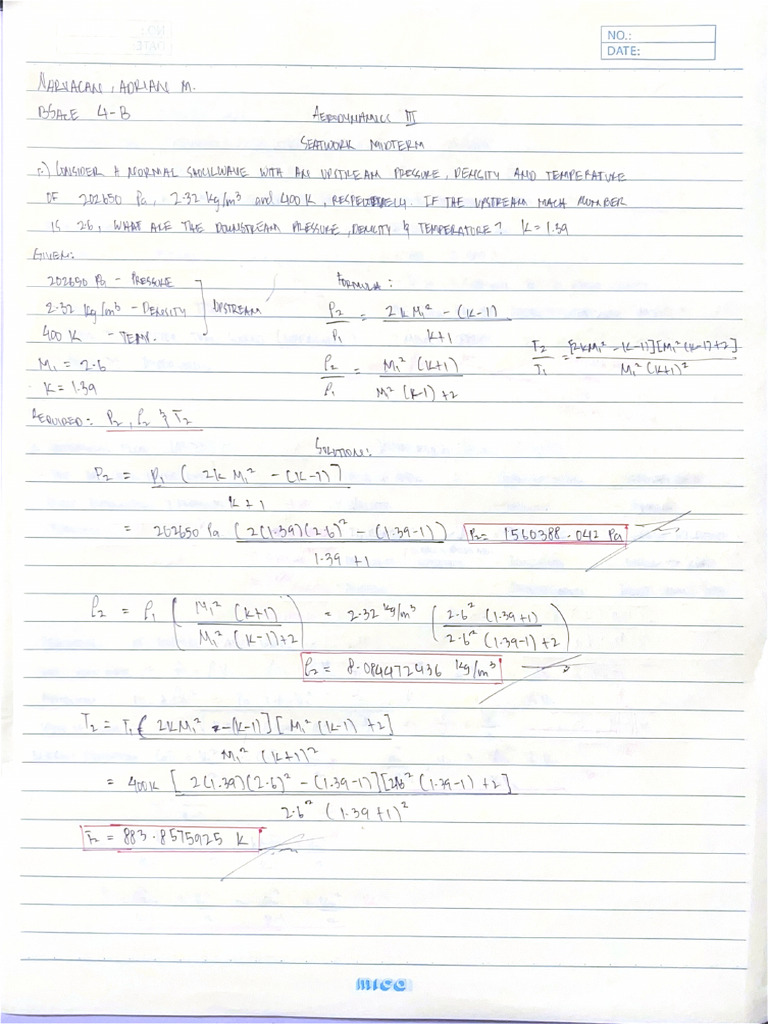 NO.:
DATE:
NARVACAN, ADRIAN M.
BSAeE 4-B
AERODYNAMICS III
SEATWORK MIDTERM
1.) CONSIDER A NORMAL SHOCKWAVE WITH AN UPSTREAM PRESSURE, DENSITY AND TEMPERATURE
OF 202650 Pa, 2.32 kg/m³ and 400 K, RESPECTIVELY. IF THE UPSTREAM MACH NUMBER
IS 2.6, WHAT ARE THE DOWNSTREAM PRESSURE, DENSITY & TEMPERATURE? K = 1.39
GIVEN:
202650 Pa - PRESSURE
2.32 kg/m³ - DENSITY
400 K - TEMP.
UPSTREAM
M₁ = 2.6
K = 1.39
FORMULA:
P₂/P₁ = 2KM₁² - (K-1) / K+1
ρ₂/ρ₁ = M₁² (K+1) / M² (K-1) + 2
T₂/T₁ = [2KM₁² - (K-1)][M₁² (K-1)+2] / M₁² (K+1)²
REQUIRED: P₂, ρ₂ & T₂
SOLUTION:
P₂ = P₁ ( 2K M₁² - (K-1)) / K+1
= 202650 Pa (2(1.39)(2.6)² - (1.39-1)) / 1.39 + 1
P₂ = 1560388.042 Pa
ρ₂ = ρ₁ ( M₁² (K+1) / M₁² (K-1)+2 ) = 2.32 kg/m³ ( 2.6² (1.39+1) / 2.6² (1.39-1) + 2 )
ρ₂ = 8.094472436 kg/m³
T₂ = T₁ [ 2KM₁² - (K-1)] [ M₁² (K-1) + 2] / M₁² (K+1)²
= 400K [ 2(1.39)(2.6)² - (1.39-1)][2.6² (1.39-1) + 2] / 2.6² (1.39+1)²
T₂ = 883.8575925 K
mico